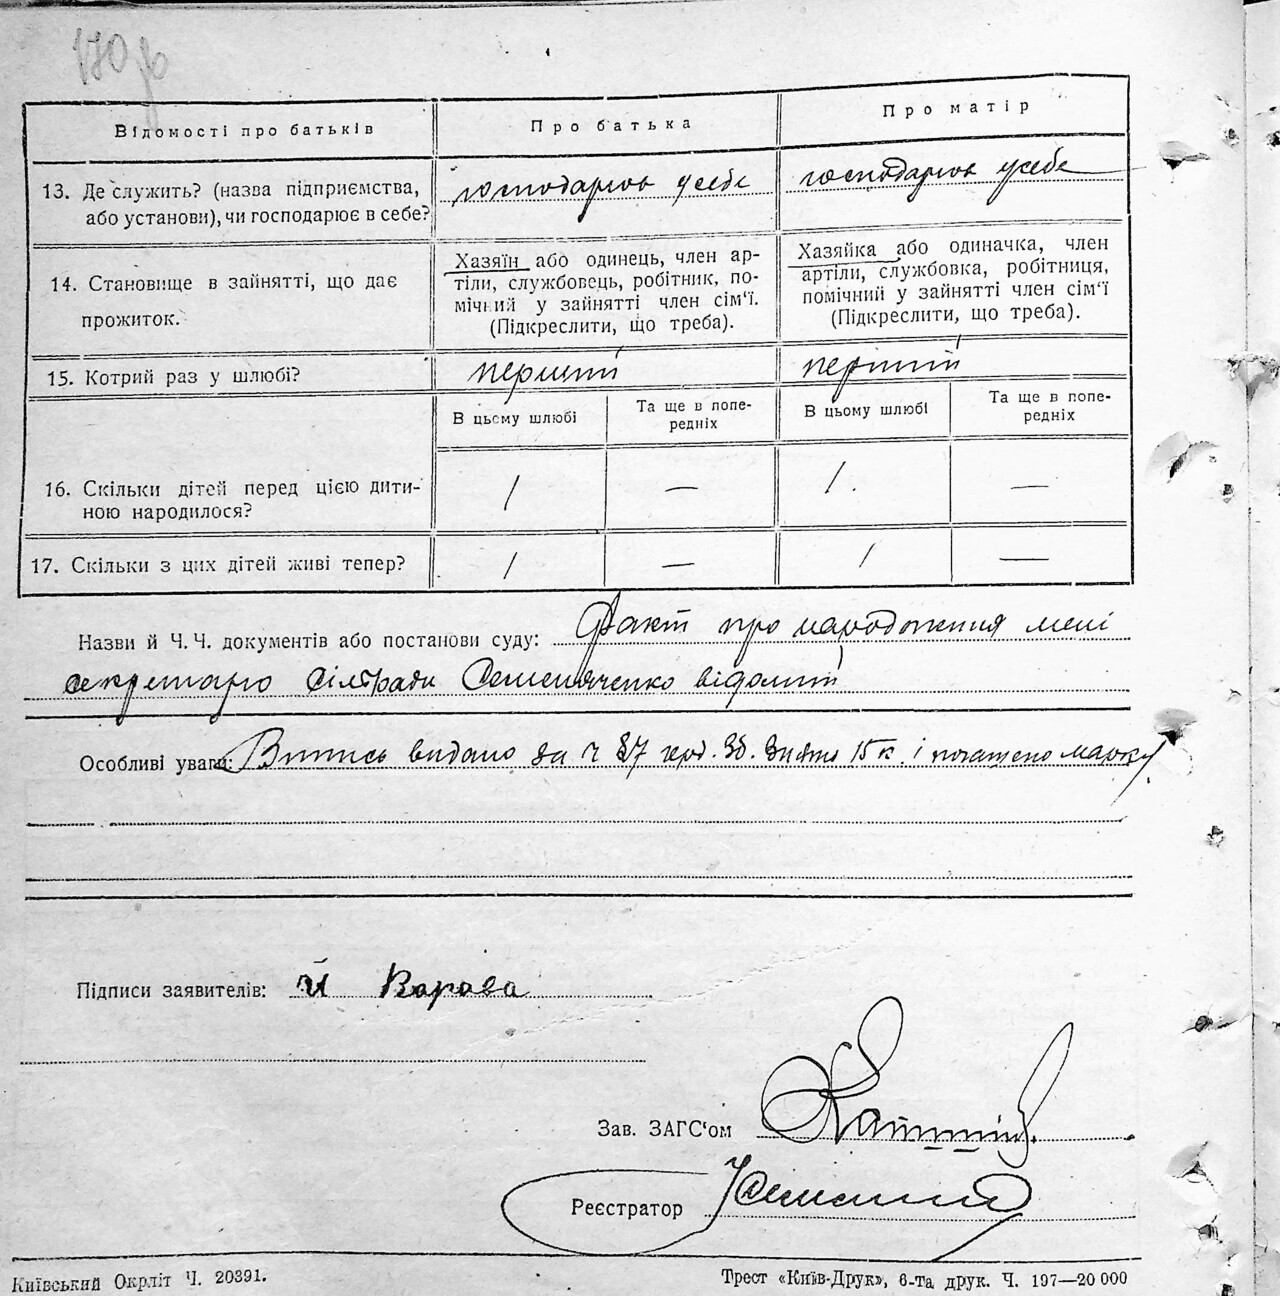 Відомості про батьків
Про батька
Про матір
13. Де служить? (назва підприємства, або установи), чи господарює в себе?
господарює у себе
господарює у себе
14. Становище в зайнятті, що дає прожиток.
Хазяїн або одинець, член ар-
тіли, службовець, робітник, по-
мічний у зайнятті член сім'ї.
(Підкреслити, що треба).
Хазяйка або одиначка, член
артіли, службовка, робітниця,
помічний у зайнятті член сім'ї
(Підкреслити, що треба).
15. Котрий раз у шлюбі?
перший
перший
В цьому шлюбі
Та ще в попе-
редніх
В цьому шлюбі
Та ще в попе-
редніх
16. Скільки дітей перед цією дити-
ною народилося?
1 — 1. —
17. Скільки з цих дітей живі тепер?
1 — 1 —
Назви й Ч. Ч. документів або постанови суду: Факт про народження мені
секретарю сільради Семеняченко відомий
Особливі уваги: Випись видано за ч 87 зб. знято 15 к. і погашено марку
Підписи заявителів: Й Варава
Зав. ЗАГС'ом
Реєстратор
Київський Окрліт Ч. 20391.
Трест «Київ-Друк», 6-та друк. Ч. 197—20 000